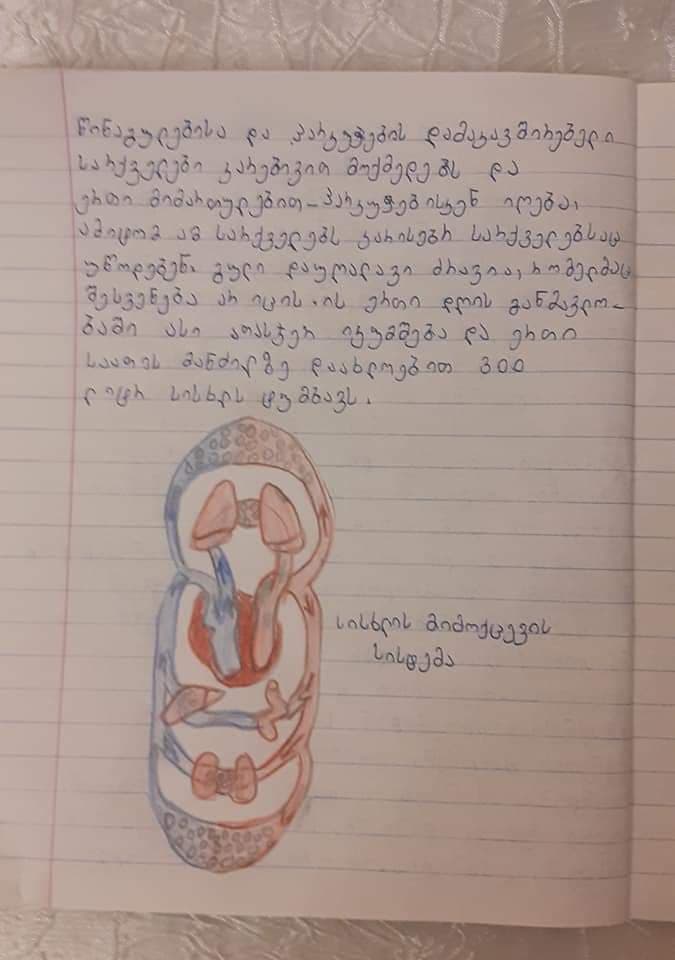 წინაგულებისა და პარკუჭების დამაკავშირებელი
სარქველები კარებივით მოქმედებს და
ერთი მიმართულებით-პარკუჭებისკენ იღება,
ამიტომ ამ სარქველებს კარისებრ სარქველებსაც
უწოდებენ. გული დაუღალავი ძრავია, რომელმაც
შესვენება არ იცის. ის ერთი დღის განმავლო-
ბაში ასი ათასჯერ იკუმშება და ერთი
საათის მანძილზე დაახლოებით 300
ლიტრ სისხლს ტუმბავს.
სისხლის მიმოქცევის
სისტემა